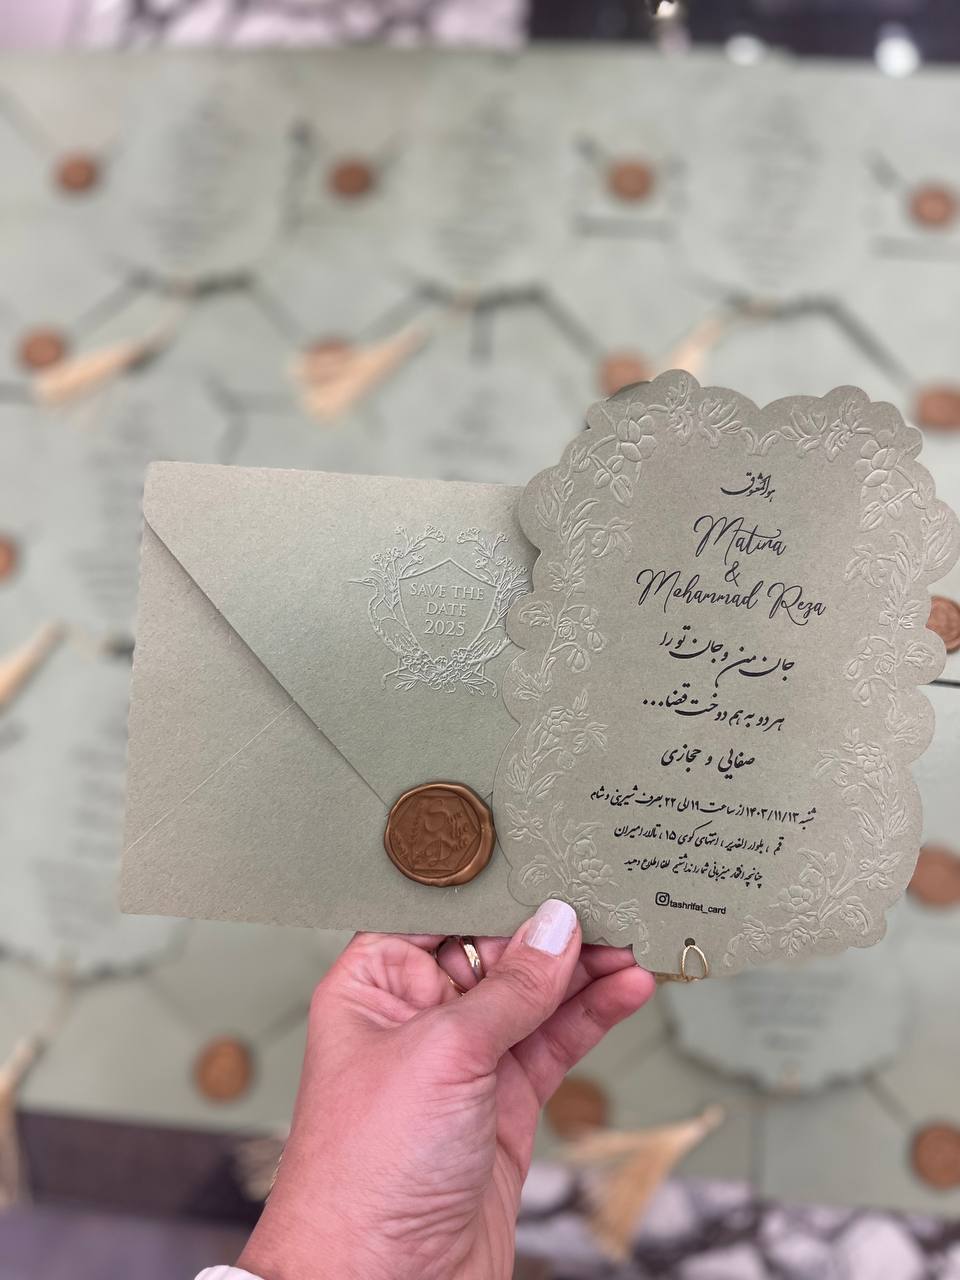 SAVE THE
DATE
2025
هوالمعشوق
Matina
&
Mohammad Reza
جان من و جان تو را
هر دو به هم دوخت قضا...
صفایی و حجازی
شنبه ۱۴۰۳/۱۱/۱۳ از ساعت ۱۹ الی ۲۲ بصرف شیرینی و شام
قم ، بلوار الغدیر ، انتهای کوی ۱۵ ، تالار امیران
چنانچه افتخار میزبانی شما را نداشتیم لطفا اطلاع دهید
tashrifat_card